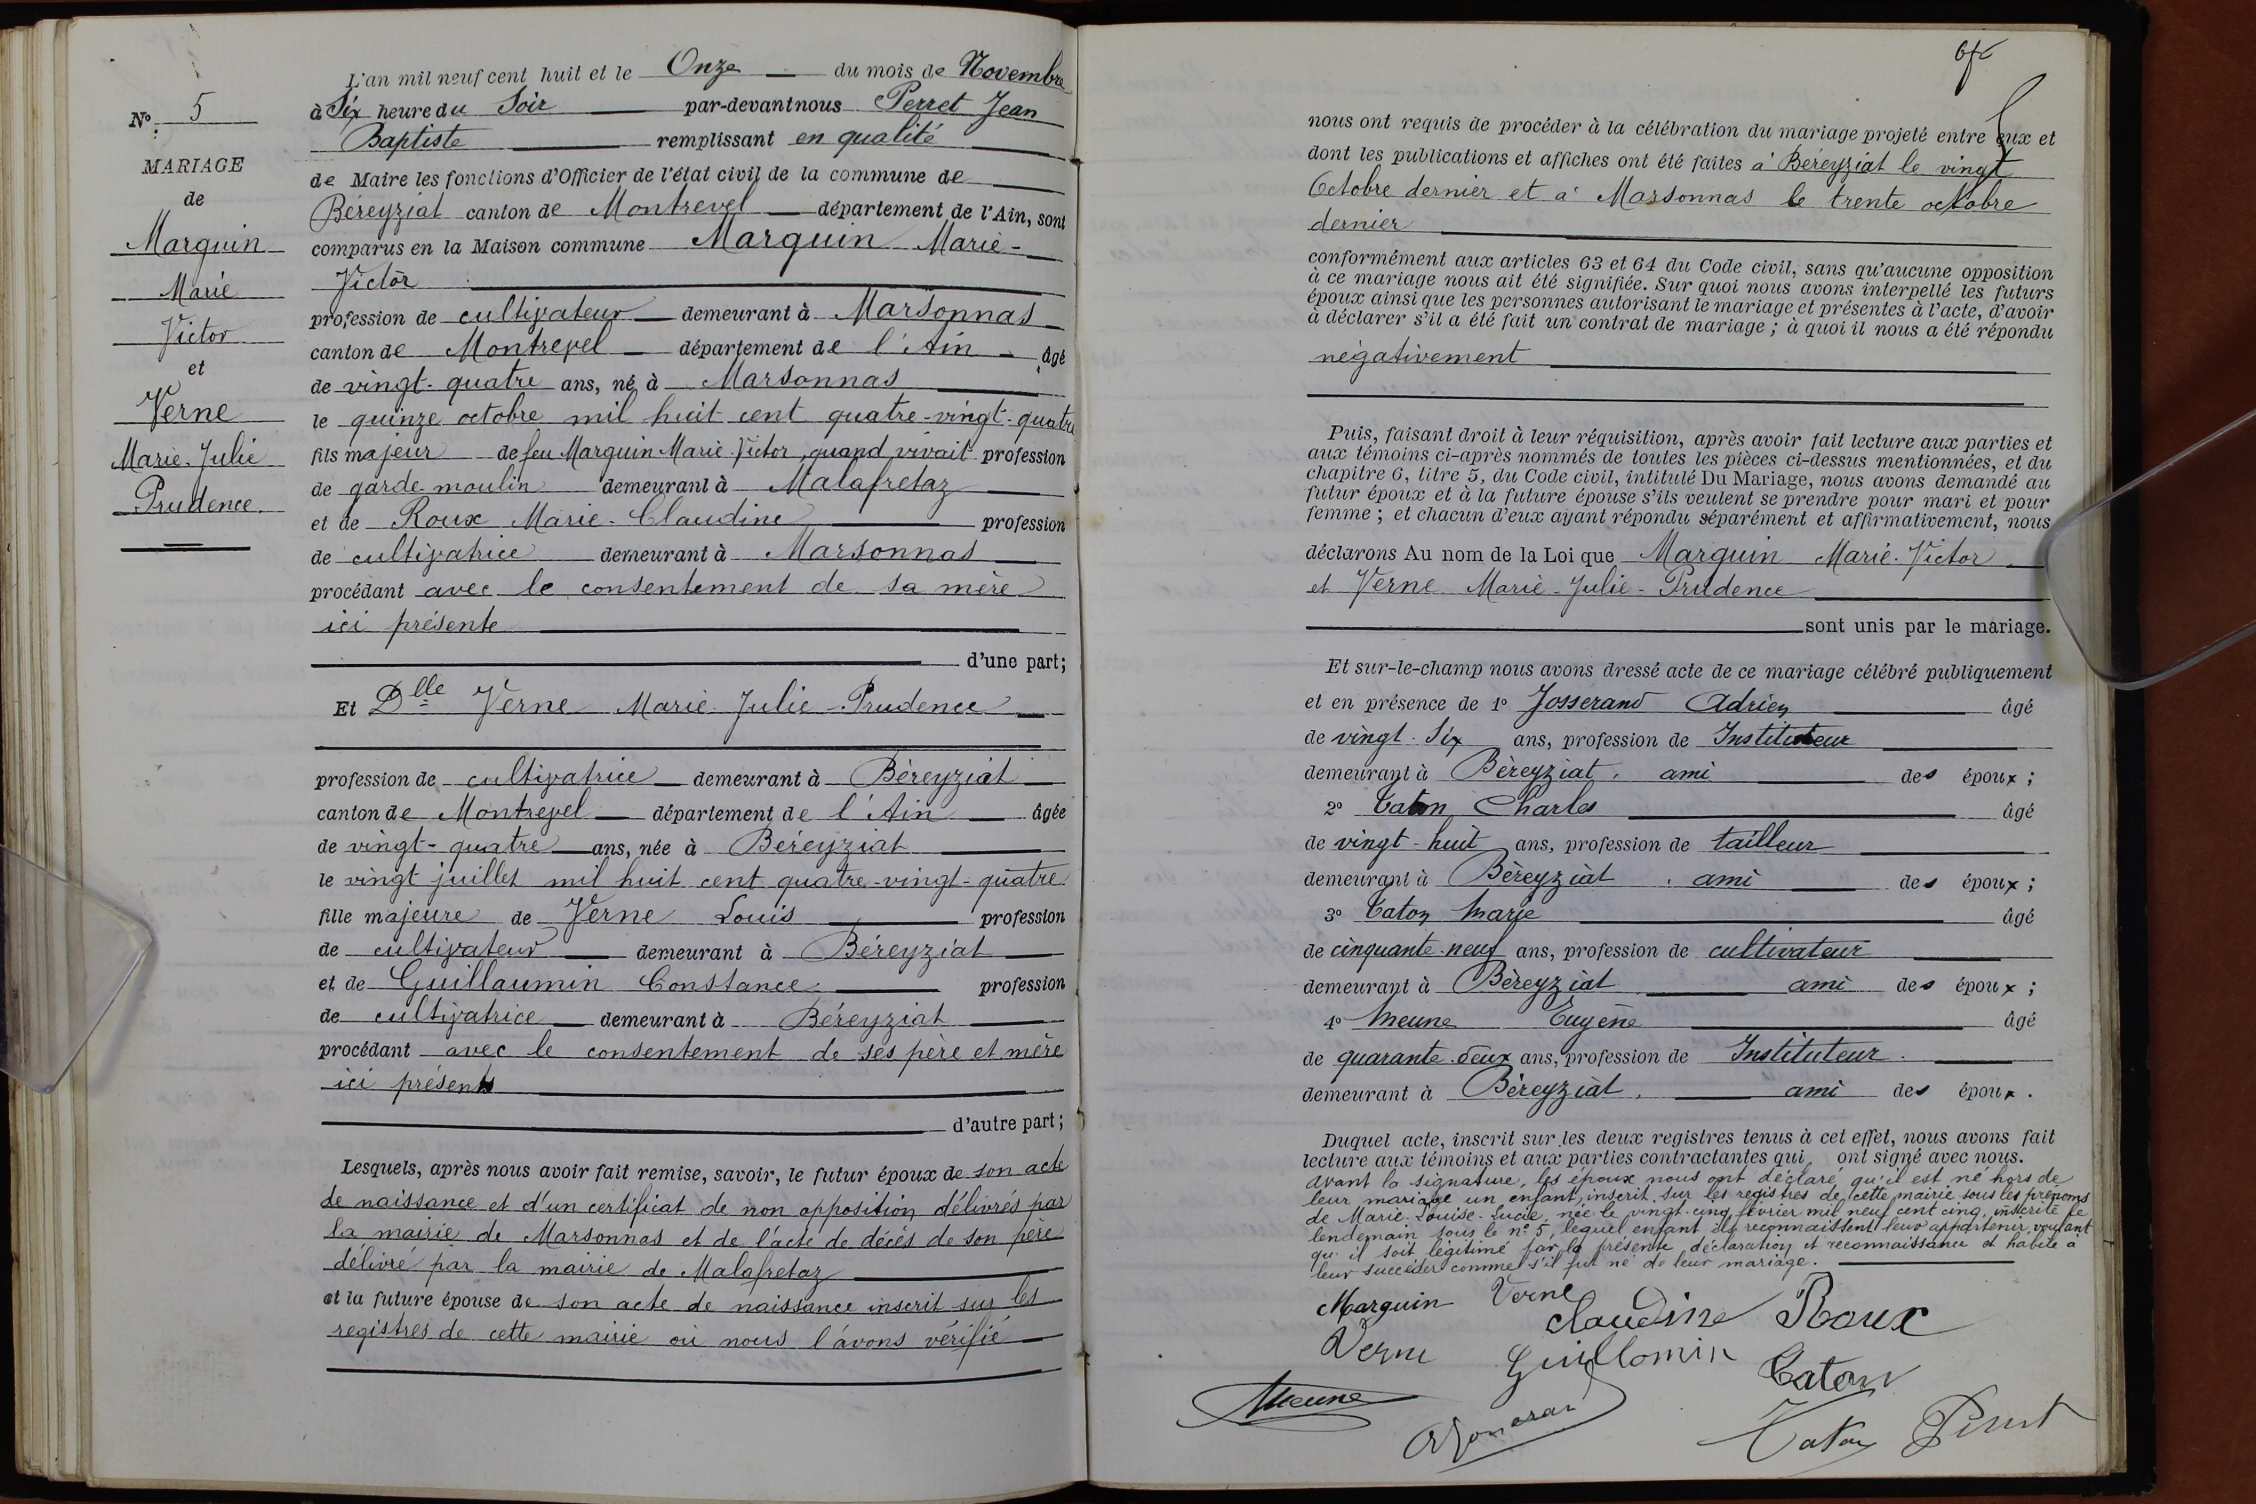 L'an mil neuf cent huit et le Onze du mois de Novembre
à Six heure du Soir par-devant nous Perret Jean
Baptiste remplissant en qualité
de Maire les fonctions d'Officier de l'état civil de la commune de
Béreyziat canton de Montrevel département de l'Ain, sont
comparus en la Maison commune Marguin Marie-
Victor
profession de cultivateur demeurant à Marsonnas
canton de Montrevel département de l'Ain âgé
de vingt-quatre ans, né à Marsonnas
le quinze octobre mil huit cent quatre-vingt-quatre
fils majeur de feu Marguin Marie-Victor, quand vivait profession
de garde-moulin demeurant à Malafretaz
et de Roux Marie-Claudine profession
de cultivatrice demeurant à Marsonnas
procédant avec le consentement de sa mère
ici présente
d'une part;
Et Dlle Verne Marie-Julie-Prudence
profession de cultivatrice demeurant à Béreyziat
canton de Montrevel département de l'Ain âgée
de vingt-quatre ans, née à Béreyziat
le vingt juillet mil huit cent quatre-vingt-quatre
fille majeure de Verne Louis profession
de cultivateur demeurant à Béreyziat
et de Guillaumin Constance profession
de cultivatrice demeurant à Béreyziat
procédant avec le consentement de ses père et mère
ici présents
d'autre part;
Lesquels, après nous avoir fait remise, savoir, le futur époux de son acte
de naissance et d'un certificat de non opposition délivrés par
la mairie de Marsonnas et de l'acte de décès de son père
délivré par la mairie de Malafretaz
et la future épouse de son acte de naissance inscrit sur les
registres de cette mairie où nous l'avons vérifié
No. 5
MARIAGE
de
Marguin
Marie
Victor
et
Verne
Marie-Julie
Prudence.
nous ont requis de procéder à la célébration du mariage projeté entre eux et
dont les publications et affiches ont été faites à Béreyziat le vingt
Octobre dernier et à Marsonnas le trente octobre
dernier
conformément aux articles 63 et 64 du Code civil, sans qu'aucune opposition
à ce mariage nous ait été signifiée. Sur quoi nous avons interpellé les futurs
époux ainsi que les personnes autorisant le mariage et présentes à l'acte, d'avoir
à déclarer s'il a été fait un contrat de mariage; à quoi il nous a été répondu
négativement
Puis, faisant droit à leur réquisition, après avoir fait lecture aux parties et
aux témoins ci-après nommés de toutes les pièces ci-dessus mentionnées, et du
chapitre 6, titre 5, du Code civil, intitulé Du Mariage, nous avons demandé au
futur époux et à la future épouse s'ils veulent se prendre pour mari et pour
femme; et chacun d'eux ayant répondu séparément et affirmativement, nous
déclarons Au nom de la Loi que Marguin Marie-Victor
et Verne Marie-Julie-Prudence
sont unis par le mariage.
Et sur-le-champ nous avons dressé acte de ce mariage célébré publiquement
et en présence de 1o Josserand Adrien âgé
de vingt-Six ans, profession de Instituteur
demeurant à Béreyziat, ami des époux;
2o Caton Charles âgé
de vingt-huit ans, profession de tailleur
demeurant à Béreyziat, ami des époux;
3o Caton Marie âgé
de cinquante-neuf ans, profession de cultivateur
demeurant à Béreyziat ami des époux;
4o Meune Eugène âgé
de quarante-deux ans, profession de Instituteur
demeurant à Béreyziat, ami des époux.
Duquel acte, inscrit sur les deux registres tenus à cet effet, nous avons fait
lecture aux témoins et aux parties contractantes qui ont signé avec nous.
avant la signature, les époux nous ont déclaré qu'il est né hors de
leur mariage un enfant, inscrit sur les registres de cette mairie sous les prénoms
de Marie-Louise-Lucie, née le vingt-cinq février mil neuf cent cinq, inscrite le
lendemain sous le no 5, lequel enfant ils reconnaissent leur appartenir, voulant
qu'il soit légitimé par la présente déclaration et reconnaissance et habile à
leur succéder comme s'il fut né de leur mariage.
Marguin Verne Claudine Roux
Verne Guillomin Caton
Meune Caton Perret